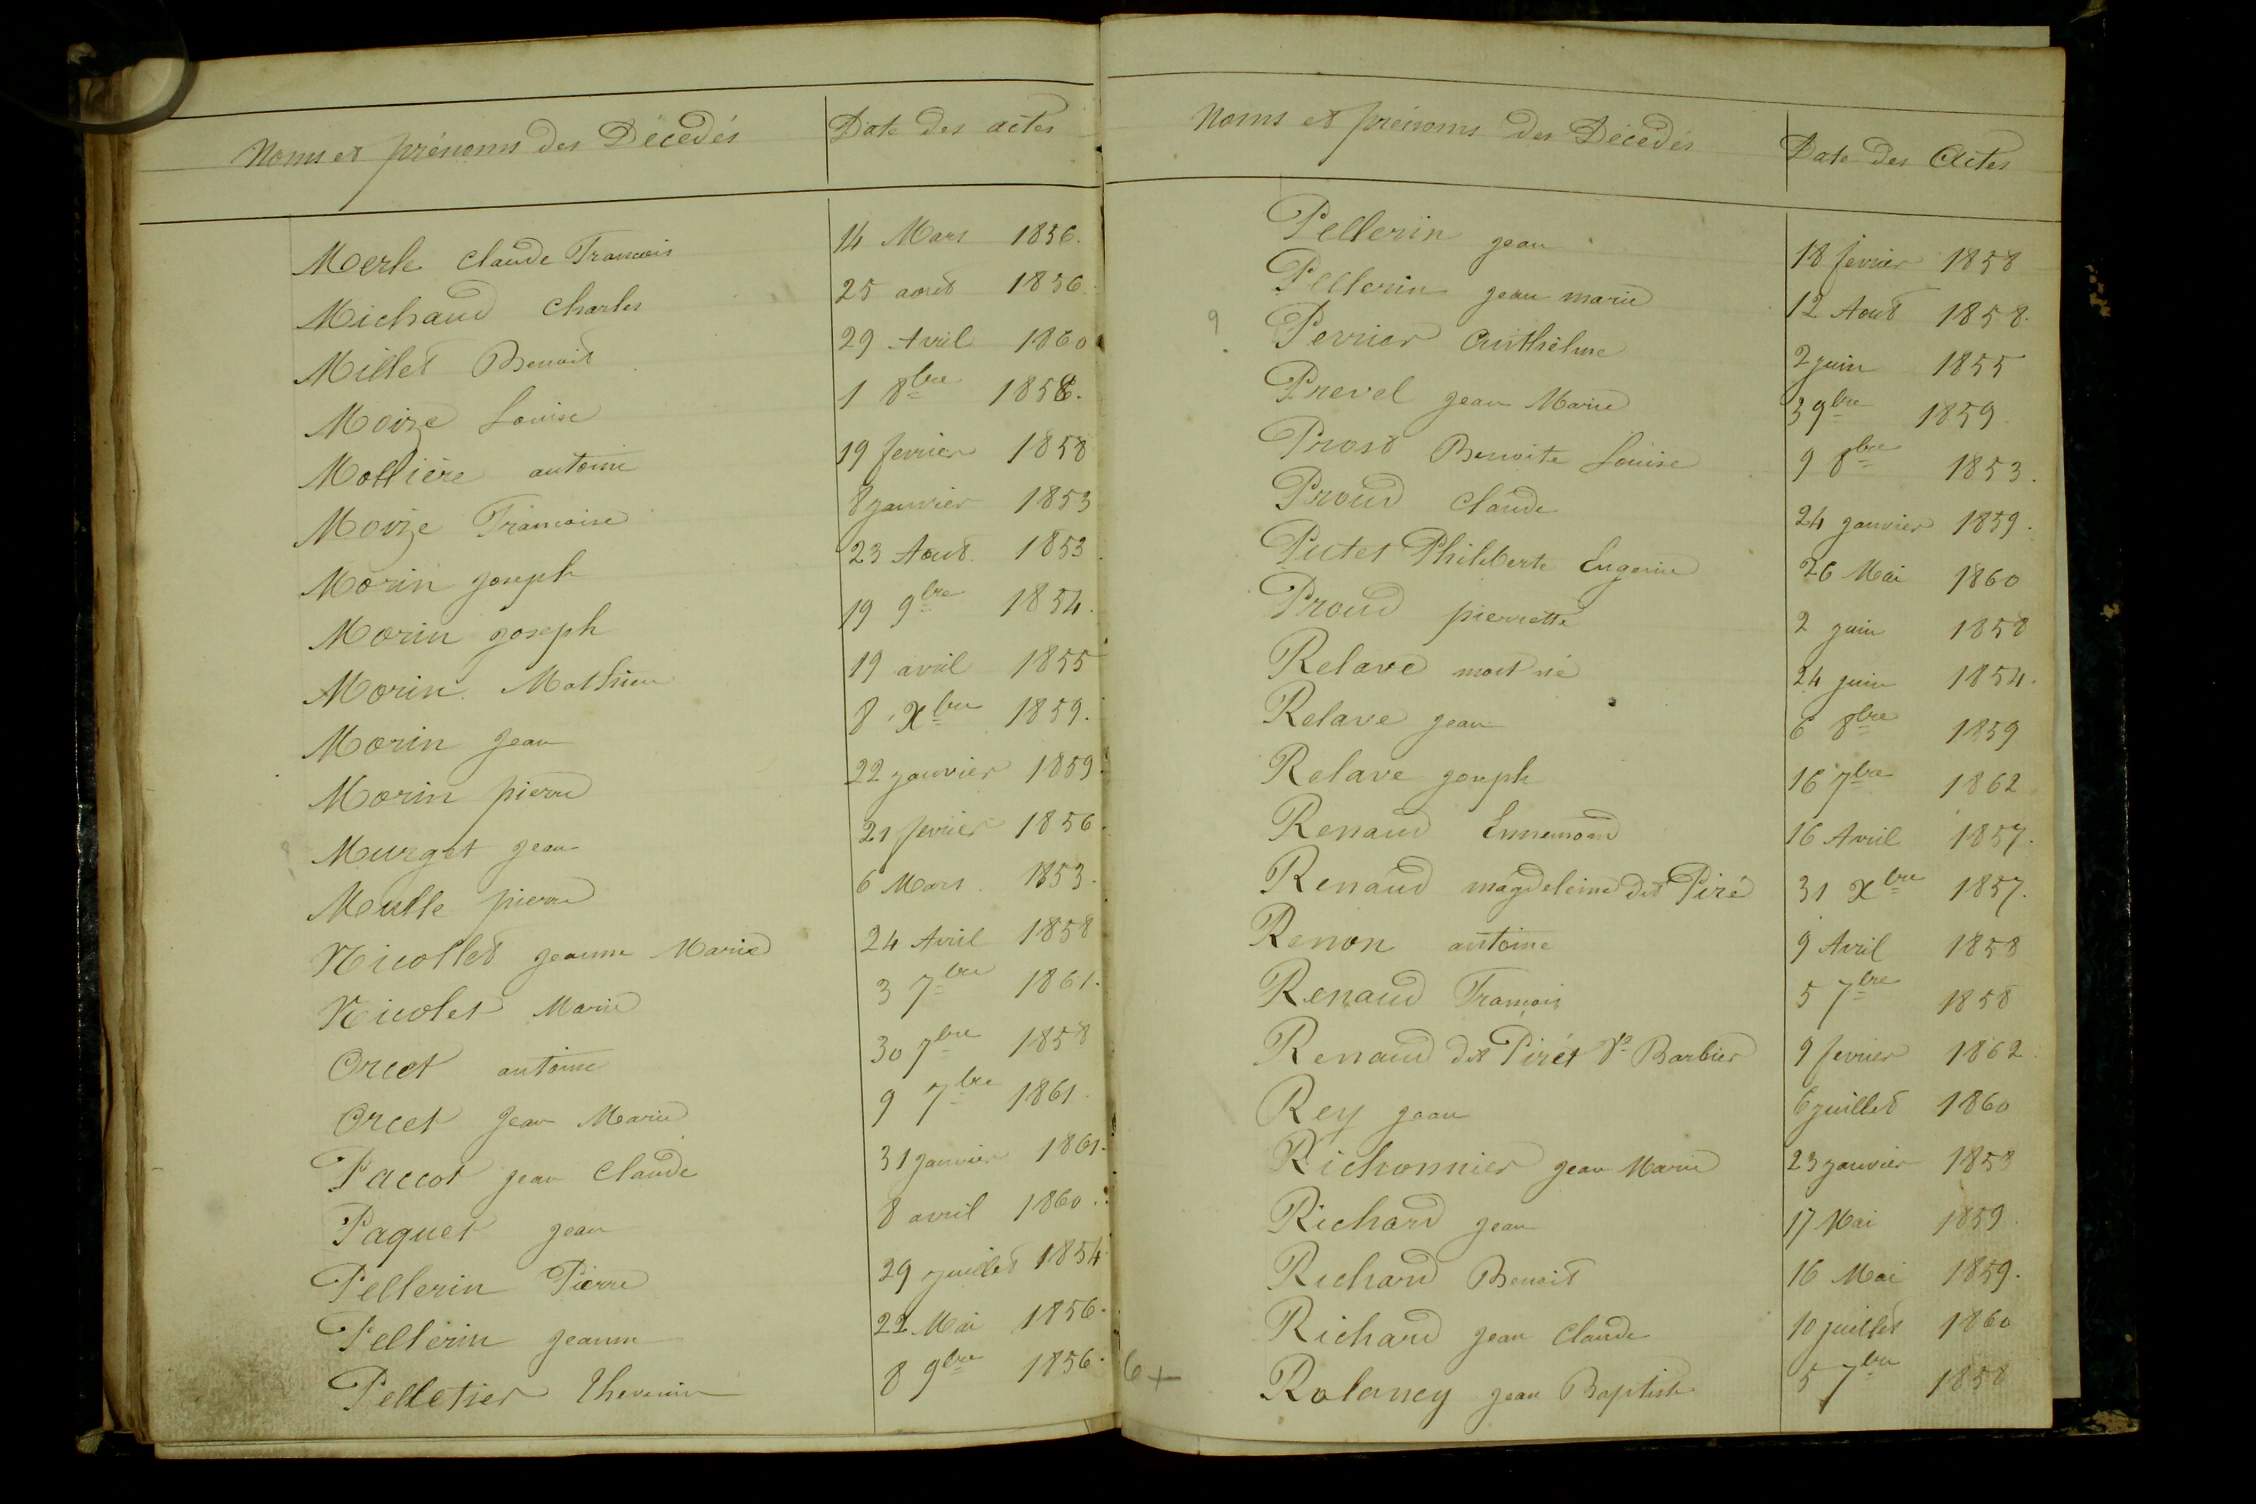 Noms et prénoms des Décédés Date des actes
Merle Claude Francois 14 Mars 1856.
Michaud Charles 25 aout 1856.
Millet Benoit 29 Avril 1860
Moize Louise 1 8bre 1856.
Mollière antoine 19 fevrier 1858
Moize Francoise 8 janvier 1853
Morin joseph 23 Aout. 1853.
Morin joseph 19 9bre 1854.
Morin Mathieu 19 avril 1855
Morin jean 8 Xbre 1859.
Morin pierre 22 janvier 1859.
Murget jean 21 fevrier 1856.
Mulle pierre 6 Mars 1853.
Nicollet jeanne Marie 24 Avril 1858
Nicolet Marie 3 7bre 1861.
Orcet antoine 30 7bre 1858
Orcet Jean Marie 9 7bre 1861.
Paccot jean Claude 31 janvier 1861.
Paquet jean 8 avril 1860.
Pellerin Pierre 29 juillet 1854
Pellerin jeanne 22 Mai 1856.
Pelletier Thevenin 8 9bre 1856.
Noms et prénoms des Décédés Date des Actes
Pellerin jean 18 fevrier 1858
Pellerin jean marie 12 Aout 1858.
9 Perrier 2 juin 1855
Prevel jean Marie 3 9bre 1859.
Prost Benoite Louise 9 8bre 1853.
Proud Claude 24 janvier 1859.
Putet Philiberte Eugenie 26 Mai 1860
Proud pierrette 2 juin 1858
Relave mort né 24 juin 1854.
Relave jean 6 8bre 1859
Relave joseph 16 7bre 1862
Renaud Ennemond 16 Avril 1857.
Renaud magdeleine dit Piré 31 Xbre 1857.
Renon antoine 9 Avril 1858
Renaud Francois 5 7bre 1858
Renaud dit Piret Ve Barbier 9 fevrier 1862
Rey jean 6 juillet 1860
Richonnier jean Marie 23 janvier 1853
Richard jean 17 Mai 1859.
Richard Benoit 16 Mai 1859.
Richard jean Claude 10 juillet 1860
6+ Rolancy jean Baptiste 5 7bre 1858